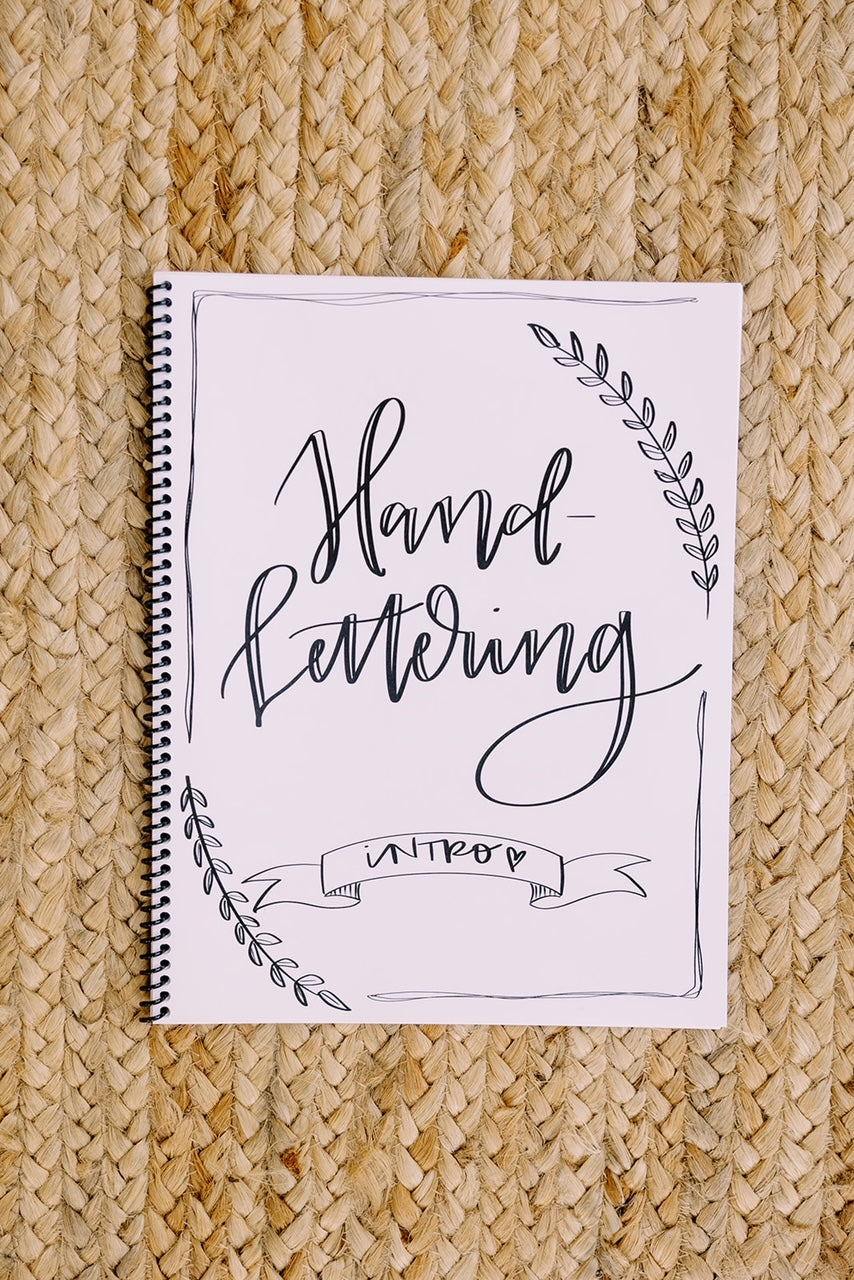 Hand-
Lettering
iNTRO ♡